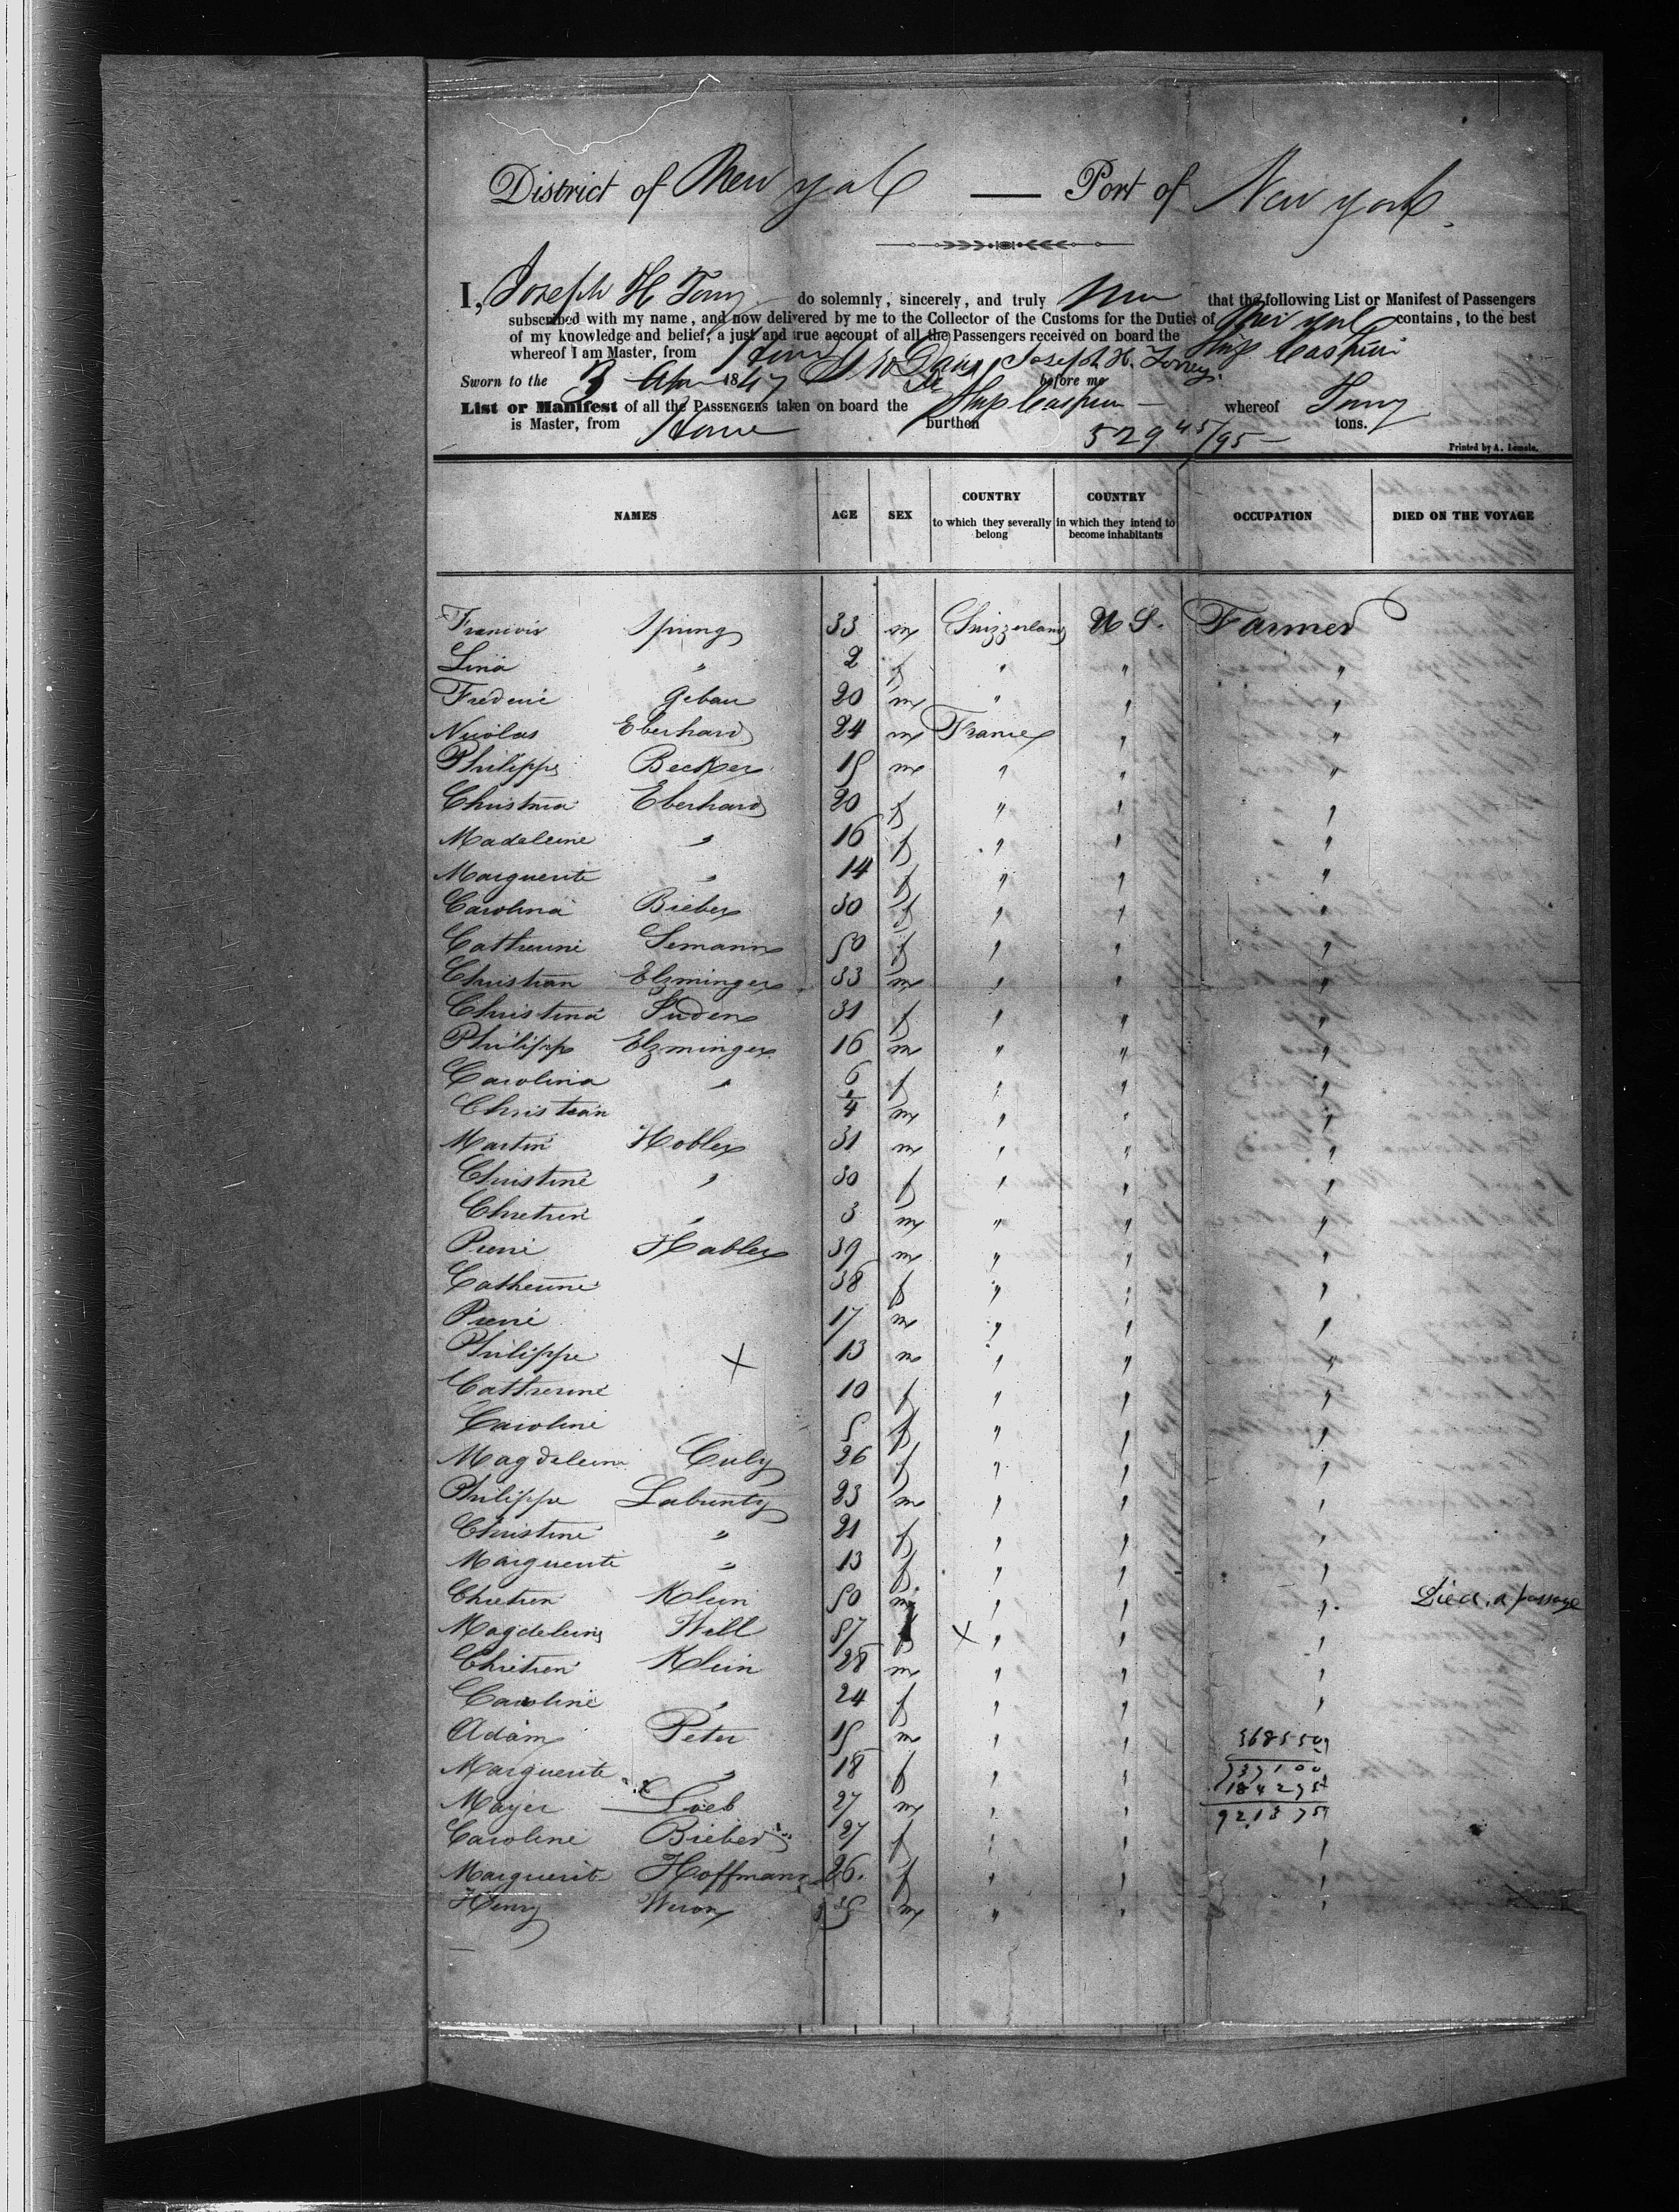 District of New york — Port of New york
I, Joseph H Torry do solemnly, sincerely, and truly that the following List or Manifest of Passengers
subscribed with my name, and now delivered by me to the Collector of the Customs for the Duties of New york contains, to the best
of my knowledge and belief, a just and true account of all the Passengers received on board the Ship Caspian
whereof I am Master, from Havre Joseph H. Torrey
Sworn to the 3 Apr 1847 before me
List or Manifest of all the PASSENGERS taken on board the Ship Caspian whereof Torry
is Master, from Havre burthen 529 45/95 tons.
Printed by A. Lemale.
NAMES AGE SEX COUNTRY to which they severally belong COUNTRY in which they intend to become inhabitants OCCUPATION DIED ON THE VOYAGE
Francois Spring 33 m Swizzerland U S. Farmer
Lina " 2 f " " "
Frederic Gebau 20 m " " "
Nicolas Eberhard 24 m France " "
Philippe Becker 19 m " " "
Christina Eberhard 20 f " " "
Madeleine " 16 f " " "
Marguerite " 14 f " " "
Carolina Bieber 30 f " " "
Catherine Lemann 50 f " " "
Christian Elzminger 33 m " " "
Christina Suden 31 f " " "
Philipp Elzminger 16 m " " "
Carolina " 6 f " " "
Christian 4 m " " "
Martin Hobler 31 m " " "
Christine " 30 f " " "
Chretien " 3 m " " "
Pierre Habler 39 m " " "
Catherine 38 f " " "
Pierre 17 m " " "
Philippe X 13 m " " "
Catherine 10 f " " "
Caroline 5 f " " "
Magdeleine Culy 26 f " " "
Philippe Labunty 23 m " " "
Christine " 21 f " " "
Marguerite " 13 f " " "
Chretien Klein 50 m " " " Died. a passage
Magdeleine Will 57 f X " " "
Chretien Klein 28 m " " "
Caroline " 24 f " " "
Adam Peter 19 m " "
Marguerite " 18 f " "
Mayer Loeb 27 m " "
Caroline Bieber 27 f " " "
Marguerit Hoffmann 26. f " " "
Henry 35 m " " "